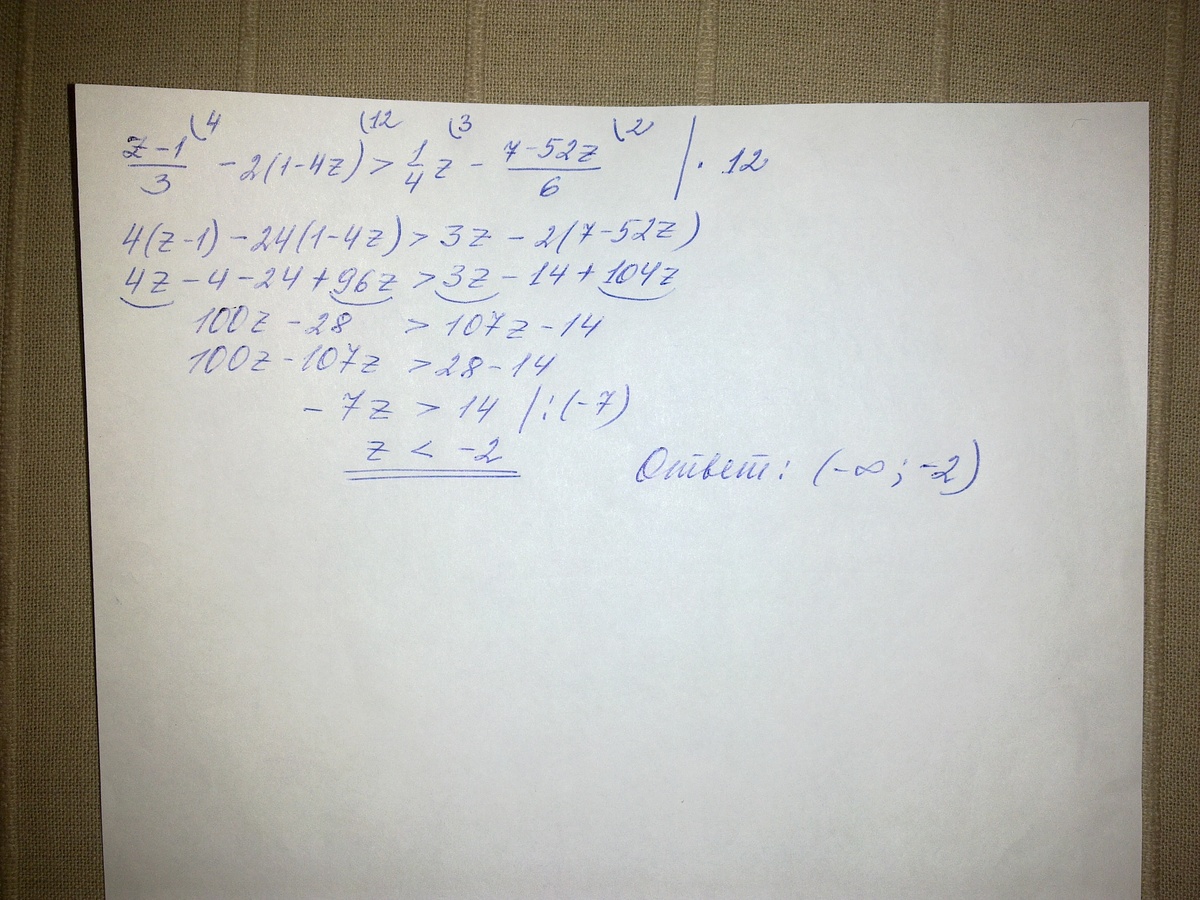 (z-1)/3 \4 - 2(1-4z) \12 > 1/4 \3 z - (7-52z)/6 \2 | · 12
4(z-1) - 24(1-4z) > 3z - 2(7-52z)
4z - 4 - 24 + 96z > 3z - 14 + 104z
100z - 28 > 107z - 14
100z - 107z > 28 - 14
- 7z > 14 | : (-7)
z < -2
Ответ: (-∞; -2)